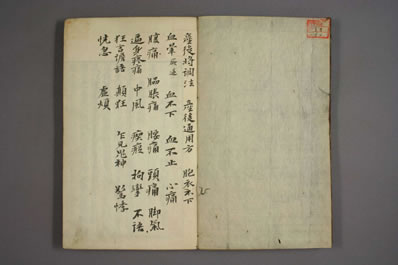 產後將調法 產後通用方 胞衣不下
血暈 血不下 血不止 心痛
腹痛 脇脹痛 腰痛 頭痛 脚氣
遍身疼痛 中風 瘈瘲 拘攣 不語
狂言譫語 顛狂 乍見鬼神 驚悸
恍惚 虛煩